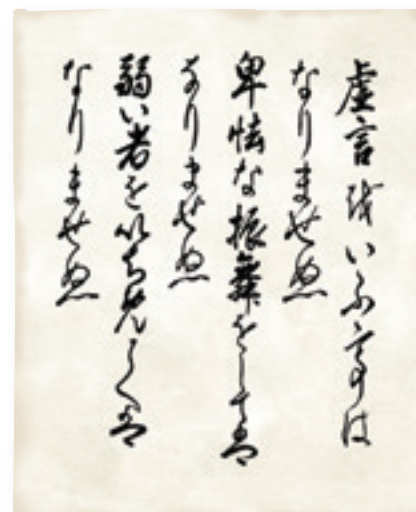 虚言をいふ事は
なりませぬ
卑怯な振舞をしては
なりませぬ
弱い者をいちめては
なりませぬ